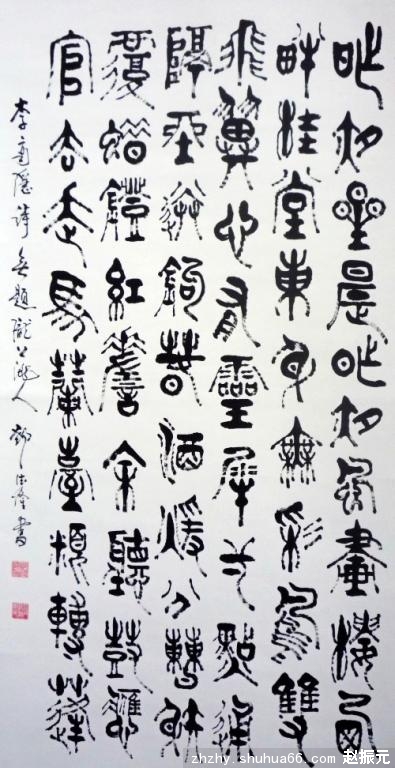 昨夜星晨昨夜風畫樓西
畔桂堂東身無彩鳳雙
飛翼心有靈犀一點通
隔座送鉤春酒暖分曹射
覆蜡鐙紅嗟余聽鼓應
官去走馬蘭臺類轉蓬
李商隱詩無題隴人書
zhzhy.shuhua66.com 赵振元